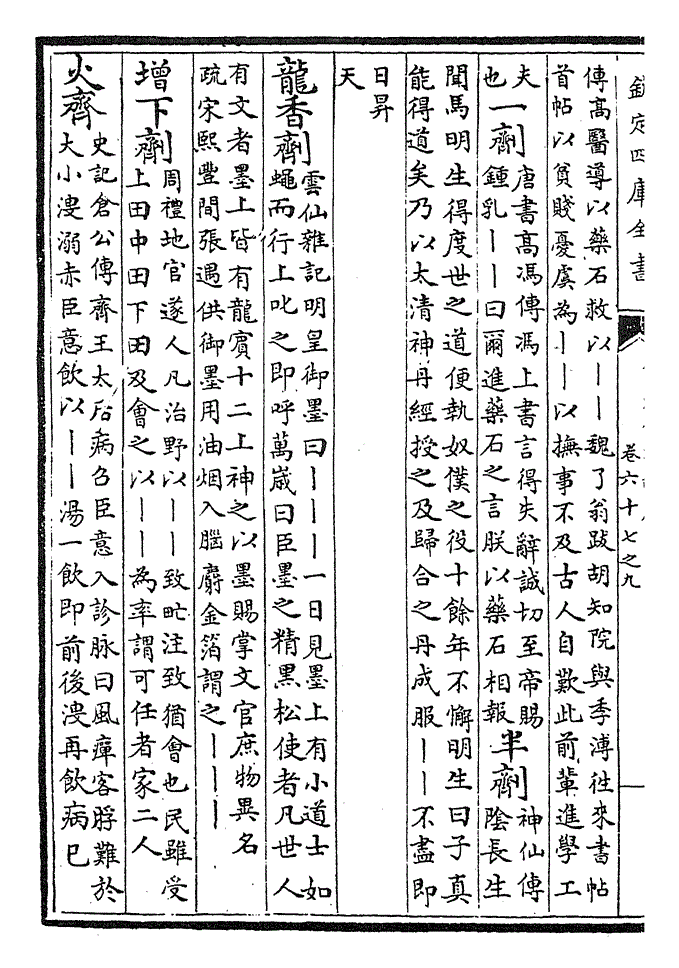 欽定四庫全書
卷六十七之九
傳髙醫導以藥石救以丨丨魏了翁跋胡知院與季溥往來書帖
首帖以貧賤憂虞為丨丨以撫事不及古人自歎此前輩進學工
夫
也
一劑
唐書髙馮傳馮上書言得失辭誠切至帝賜
鍾乳丨丨曰爾進藥石之言朕以藥石相報
半劑
神仙傳
陰長生
聞馬明生得度世之道便執奴僕之役十餘年不懈明生曰子真
能得道矣乃以太清神丹經授之及歸合之丹成服丨丨不盡即
日昇
天
龍香劑
雲仙雜記明皇御墨曰丨丨丨一日見墨上有小道士如
蠅而行上叱之即呼萬嵗曰臣墨之精黑松使者凡世人
有文者墨上皆有龍賓十二上神之以墨賜掌文官庶物異名
疏宋熙豐間張遇供御墨用油烟入腦麝金箔謂之丨丨丨
增下劑
周禮地官遂人凡治野以丨丨致甿注致猶會也民雖受
上田中田下田及會之以丨丨為率謂可任者家二人
火齊
史記倉公傳齊王太后病召臣意入診脉曰風癉客脬難於
大小溲溺赤臣意飲以丨丨湯一飲即前後溲再飲病已